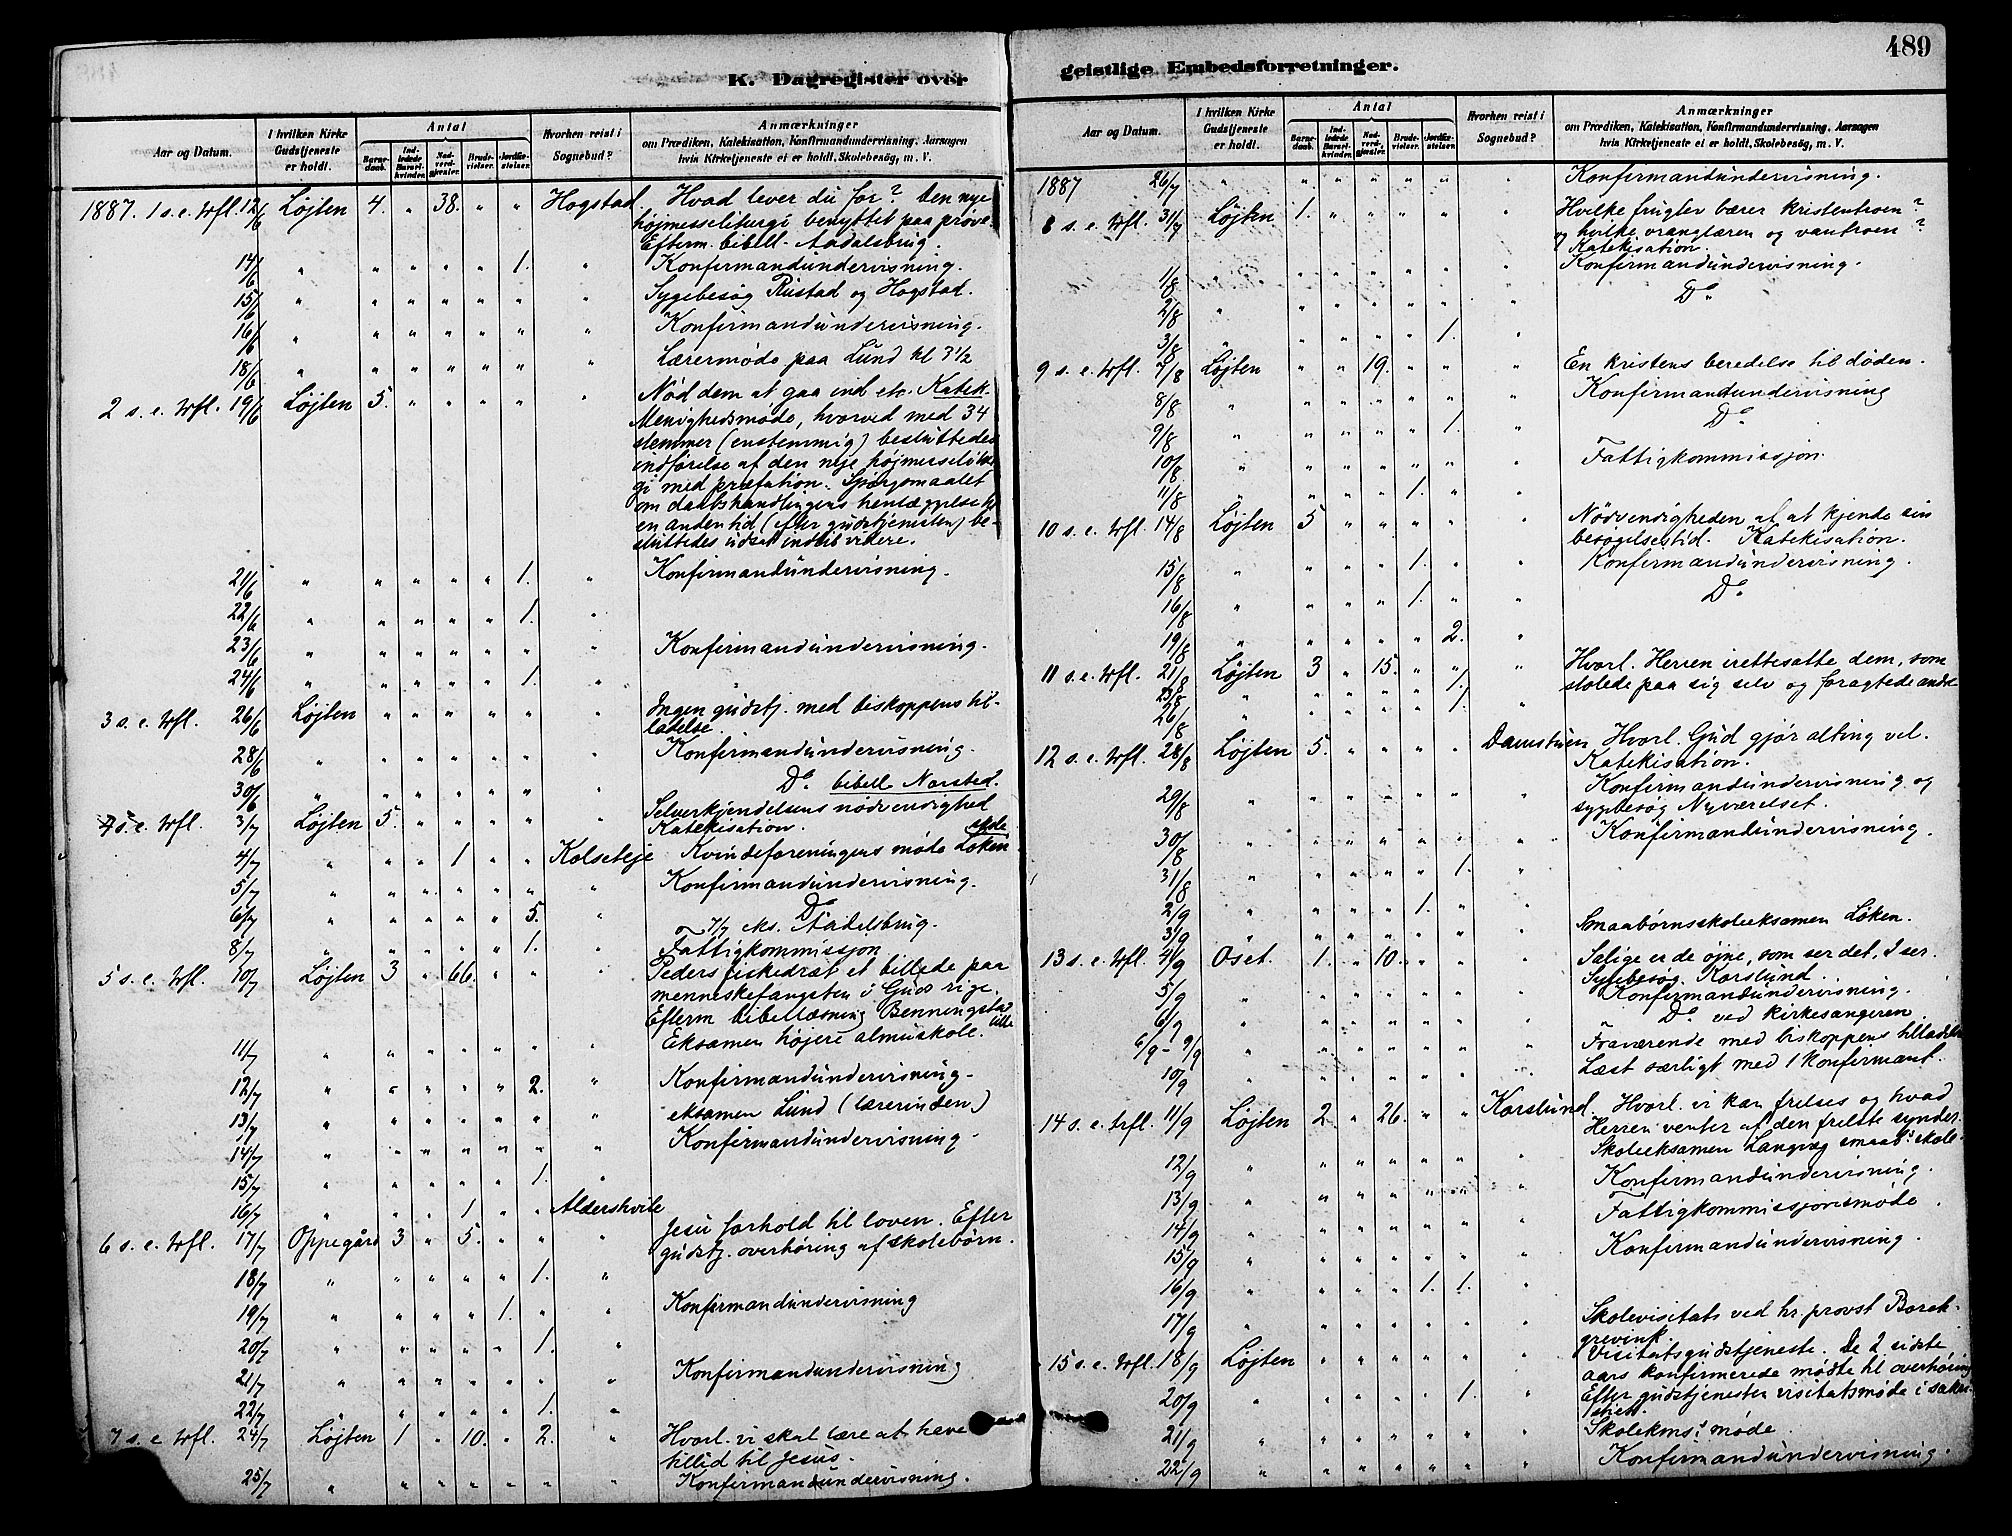 489
K. Dagregister over
Aar og Datum.
I hvilken Kirke Gudstjeneste er holdt.
Antal
Barnedaab.
Indledede Barselkvinder.
Nadverdgjester.
Brudevielser.
Jordfæstelser.
Hvorhen reist i Sognebud?
Anmærkninger
om Prædiken, Katekisation, Konfirmandundervisning, Aarsagen
hvis Kirketjeneste ei er holdt, Skolebesøg, m. V.
1887. 1 s. e. trfl. 12/6 Løjten 4. " 38. " " Hogstad. Hvad lever du for? Den nye
højmesseliturgi benyttet paa prøve.
Efterm. bibell. Aadalsbrug.
14/6 " " " " " 1. " Konfirmandundervisning.
15/6 " " " " " " " Sygebesøg Rustad og Hogstad.
16/6 " " " " " " " Konfirmandundervisning.
18/6 " " " " " " " Lærermøde paa Lund kl 3 1/2
2 s. e. trfl. 19/6 Løjten 5. " " " " " Nød dem at gaa ind etc. Katek.
Menighedsmøde, hvorved med 34
stemmer (enstemmig) besluttedes
indførelse af den nye højmesselitur
gi med præfation. Spørgsmaalet
om daabshandlingens henlæggelse til
en anden tid (efter gudstjenesten) be-
sluttedes udsat indtil videre.
21/6 " " " " " 1. " Konfirmandundervisning.
22/6 " " " " " 1. "
23/6 " " " " " " " Konfirmandundervisning.
24/6 " " " " " 1. "
3 s. e. trfl. 26/6 Løjten " " " " " " Ingen gudstj. med biskoppens til-
ladelse.
28/6 " " " " " " " Konfirmandundervisning.
30/6 " " " " " " " Do bibell. Narstad.
4 s. e. trfl. 3/7 Løjten 5. " " " " " Selverkjendelsens nødvendighed
Katekisation.
4/7 " " " 1 " " Kolseteje Kvindeforeningens møde Løken
5/7 " " " " " " " Konfirmandundervisning.
6/7 " " " " " 5. " Do
7/7 Ms. Aadelsbrug.
8/7 " " " " " 1. " Fattigkommissjon
5 s. e. trfl. 10/7 Løjten 3 " 66. " " " Peders fiskedræt et billede paa
menneskefangsten i Guds rige.
Efterm bibellæsning Benningstad
11/7 " " " " " " " Eksamen højere almuskole.
12/7 " " " " " 2. " Konfirmandundervisning.
13/7 " " " " " " " eksamen Lund (lærerinden)
14/7 " " " " " " " Konfirmandundervisning.
15/7 " " " " " 1. "
16/7 " " " 1 " " Aldershvile
6 s. e. trfl. 17/7 Oppegård 3 " 5. " " " Jesu forhold til loven. Efter
gudstj. overhøring af skolebørn.
18/7 " " " " " 1. "
19/7 " " " " 1. " " Konfirmandundervisning
20/7 " " " " " 1. "
21/7 " " " " " " " Konfirmandundervisning
22/7 " " " " " 1. "
7 s. e. trfl. 24/7 Løjten 1 " 10. " 2. " Hvorl. vi skal lære at have
tillid til Jesus.
25/7 " " " " " " " Konfirmandundervisning.
geistlige Embedsforretninger.
Aar og Datum.
I hvilken Kirke Gudstjeneste er holdt.
Antal
Barnedaab.
Indledede Barselkvinder.
Nadverdgjester.
Brudevielser.
Jordfæstelser.
Hvorhen reist i Sognebud?
Anmærkninger
om Prædiken, Katekisation, Konfirmandundervisning, Aarsagen
hvis Kirketjeneste ei er holdt, Skolebesøg, m. V.
1887 26/7 " " " " " " " Konfirmandundervisning.
8 s. e. trfl. 31/7 Løjten 1. " " " " " Hvilke frugter bærer kristentroen?
og hvilke vranglæren og vantroen?
Katekisation.
1/8 " " " " " " " Konfirmandundervisning.
2/8 " " " " " " " Do
3/8 " " " " " 1. "
9 s. e. trfl. 7/8 Løjten " " 19. " " " En kristens beredelse til døden.
8/8 " " " " " " " Konfirmandundervisning
9/8 " " " " " 1. " Do
10/8 " " " " " " " Fattigkommissjon
11/8 " " " " 1. " "
10 s. e. trfl. 14/8 Løjten 5 " " " " " Nødvendigheden af at kjende sin
besøgelsestid. Katekisation.
15/8 " " " " 1. " " Konfirmandundervisning.
16/8 " " " " 1. " " Do
19/8 " " " " " 2. "
11 s. e. trfl. 21/8 Løjten 3 " 15. " " " Hvorl. Herren irettesatte dem, som
stolede paa sig selv og foragtede andre
23/8 " " " " " 1. "
26/8 " " " " " 1. "
12 s. e. trfl. 28/8 Løjten 5. " " " " Damstuen Hvorl. Gud gjør alting vel.
Katekisation.
29/8 " " " " " " " Konfirmandundervisning og
sygebesøg Nyværelset.
30/8 " " " " " " " Konfirmandundervisning.
31/8 " " " " " 1. "
2/9 " " " " 1. " "
3/9 " " " " " " " Smaabørnsskoleeksamen Løken.
13 s. e. trfl. 4/9 Oset. 1. " 10. " " " Salige er de øjne, som ser det, I ser.
Sygebesøg Karslund.
5/9 " " " " " " " Konfirmandundervisning.
6/9 " " " " " " " Do ved kirkesangeren
6/9 - 9/9 " " " " " " " Fraværende med biskoppens tilladelse
10/9 " " " " " " " Læst særligt med 1 konfirmant.
14 s. e. trfl. 11/9 Løjten 2 " 26. " " Karslund. Hvorl. vi kan frelses og hvad
Herren venter af den frelste synder.
12/9 " " " " " " " Skoleeksamen Langvæg smaab. skole
13/9 " " " " " " " Konfirmandundervisning.
14/9 " " " " " " " Fattigkommissjonsmøde
15/9 " " " " " " " Konfirmandundervisning.
16/9 " " " " 1. 1. "
17/9 " " " " " " " Skolevisitats ved hr. provst Barch-
grevink.
15 s. e. trfl. 18/9 Løjten " " " " " " Visitatsgudstjeneste. De 2 sidste
aars konfirmerede mødte til overhøring
20/9 " " " " " 1. " Efter gudstjenesten visitatsmøde i sakri-
stiet.
21/9 " " " " " " " Skolekms. møde
22/9 " " " " " " " Konfirmandundervisning.